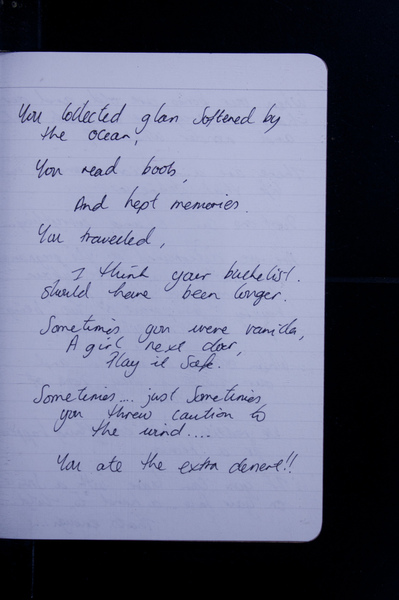 You collected glass softened by
the ocean,
You read books,
And kept memories.
You travelled,
I think your bucketlist.
should have been longer.
Sometimes you were vanilla,
A girl next door,
Play it safe.
Sometimes.... just sometimes,
you threw caution to
the wind....
You ate the extra desert!!